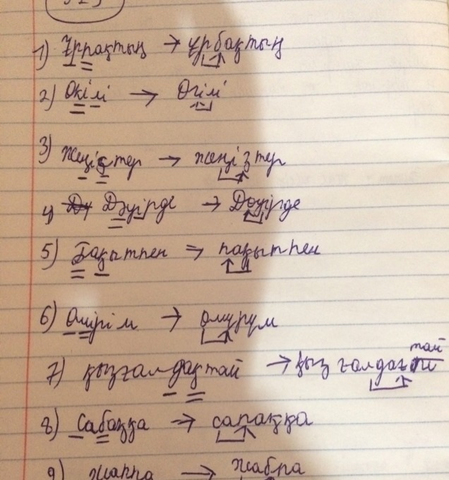 1) Ұрпақтың → ұрбақтың
2) Өкілі → Өгілі
3) Жеңістер → жеңізтер
4) Дәуірде → Дәуірде
5) Бақытпен → пақытпен
6) Өмірім → өмүрүм
7) қызғалдақтай → қызғалдағтай
8) Сабаққа → сапаққа
9) жаппа → жабра